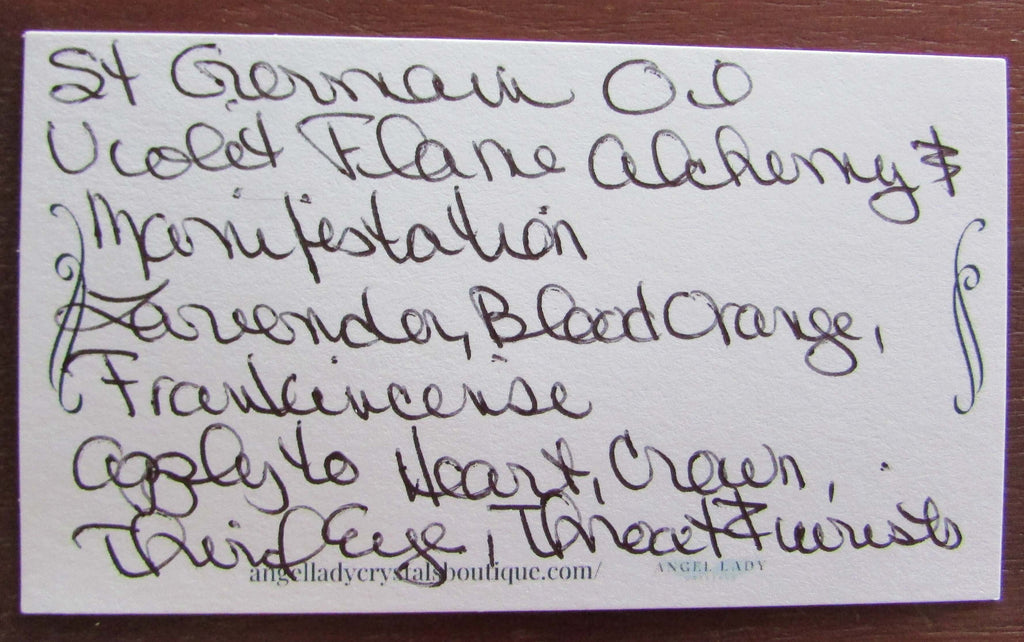 St Germain Oil
Violet Flame Alchemy &
Manifestation
Lavender, Blood Orange,
Frankincense
Apply to Heart, Crown,
Third Eye, Throat & wrists
angelladycrystalsboutique.com/ ANGEL LADY